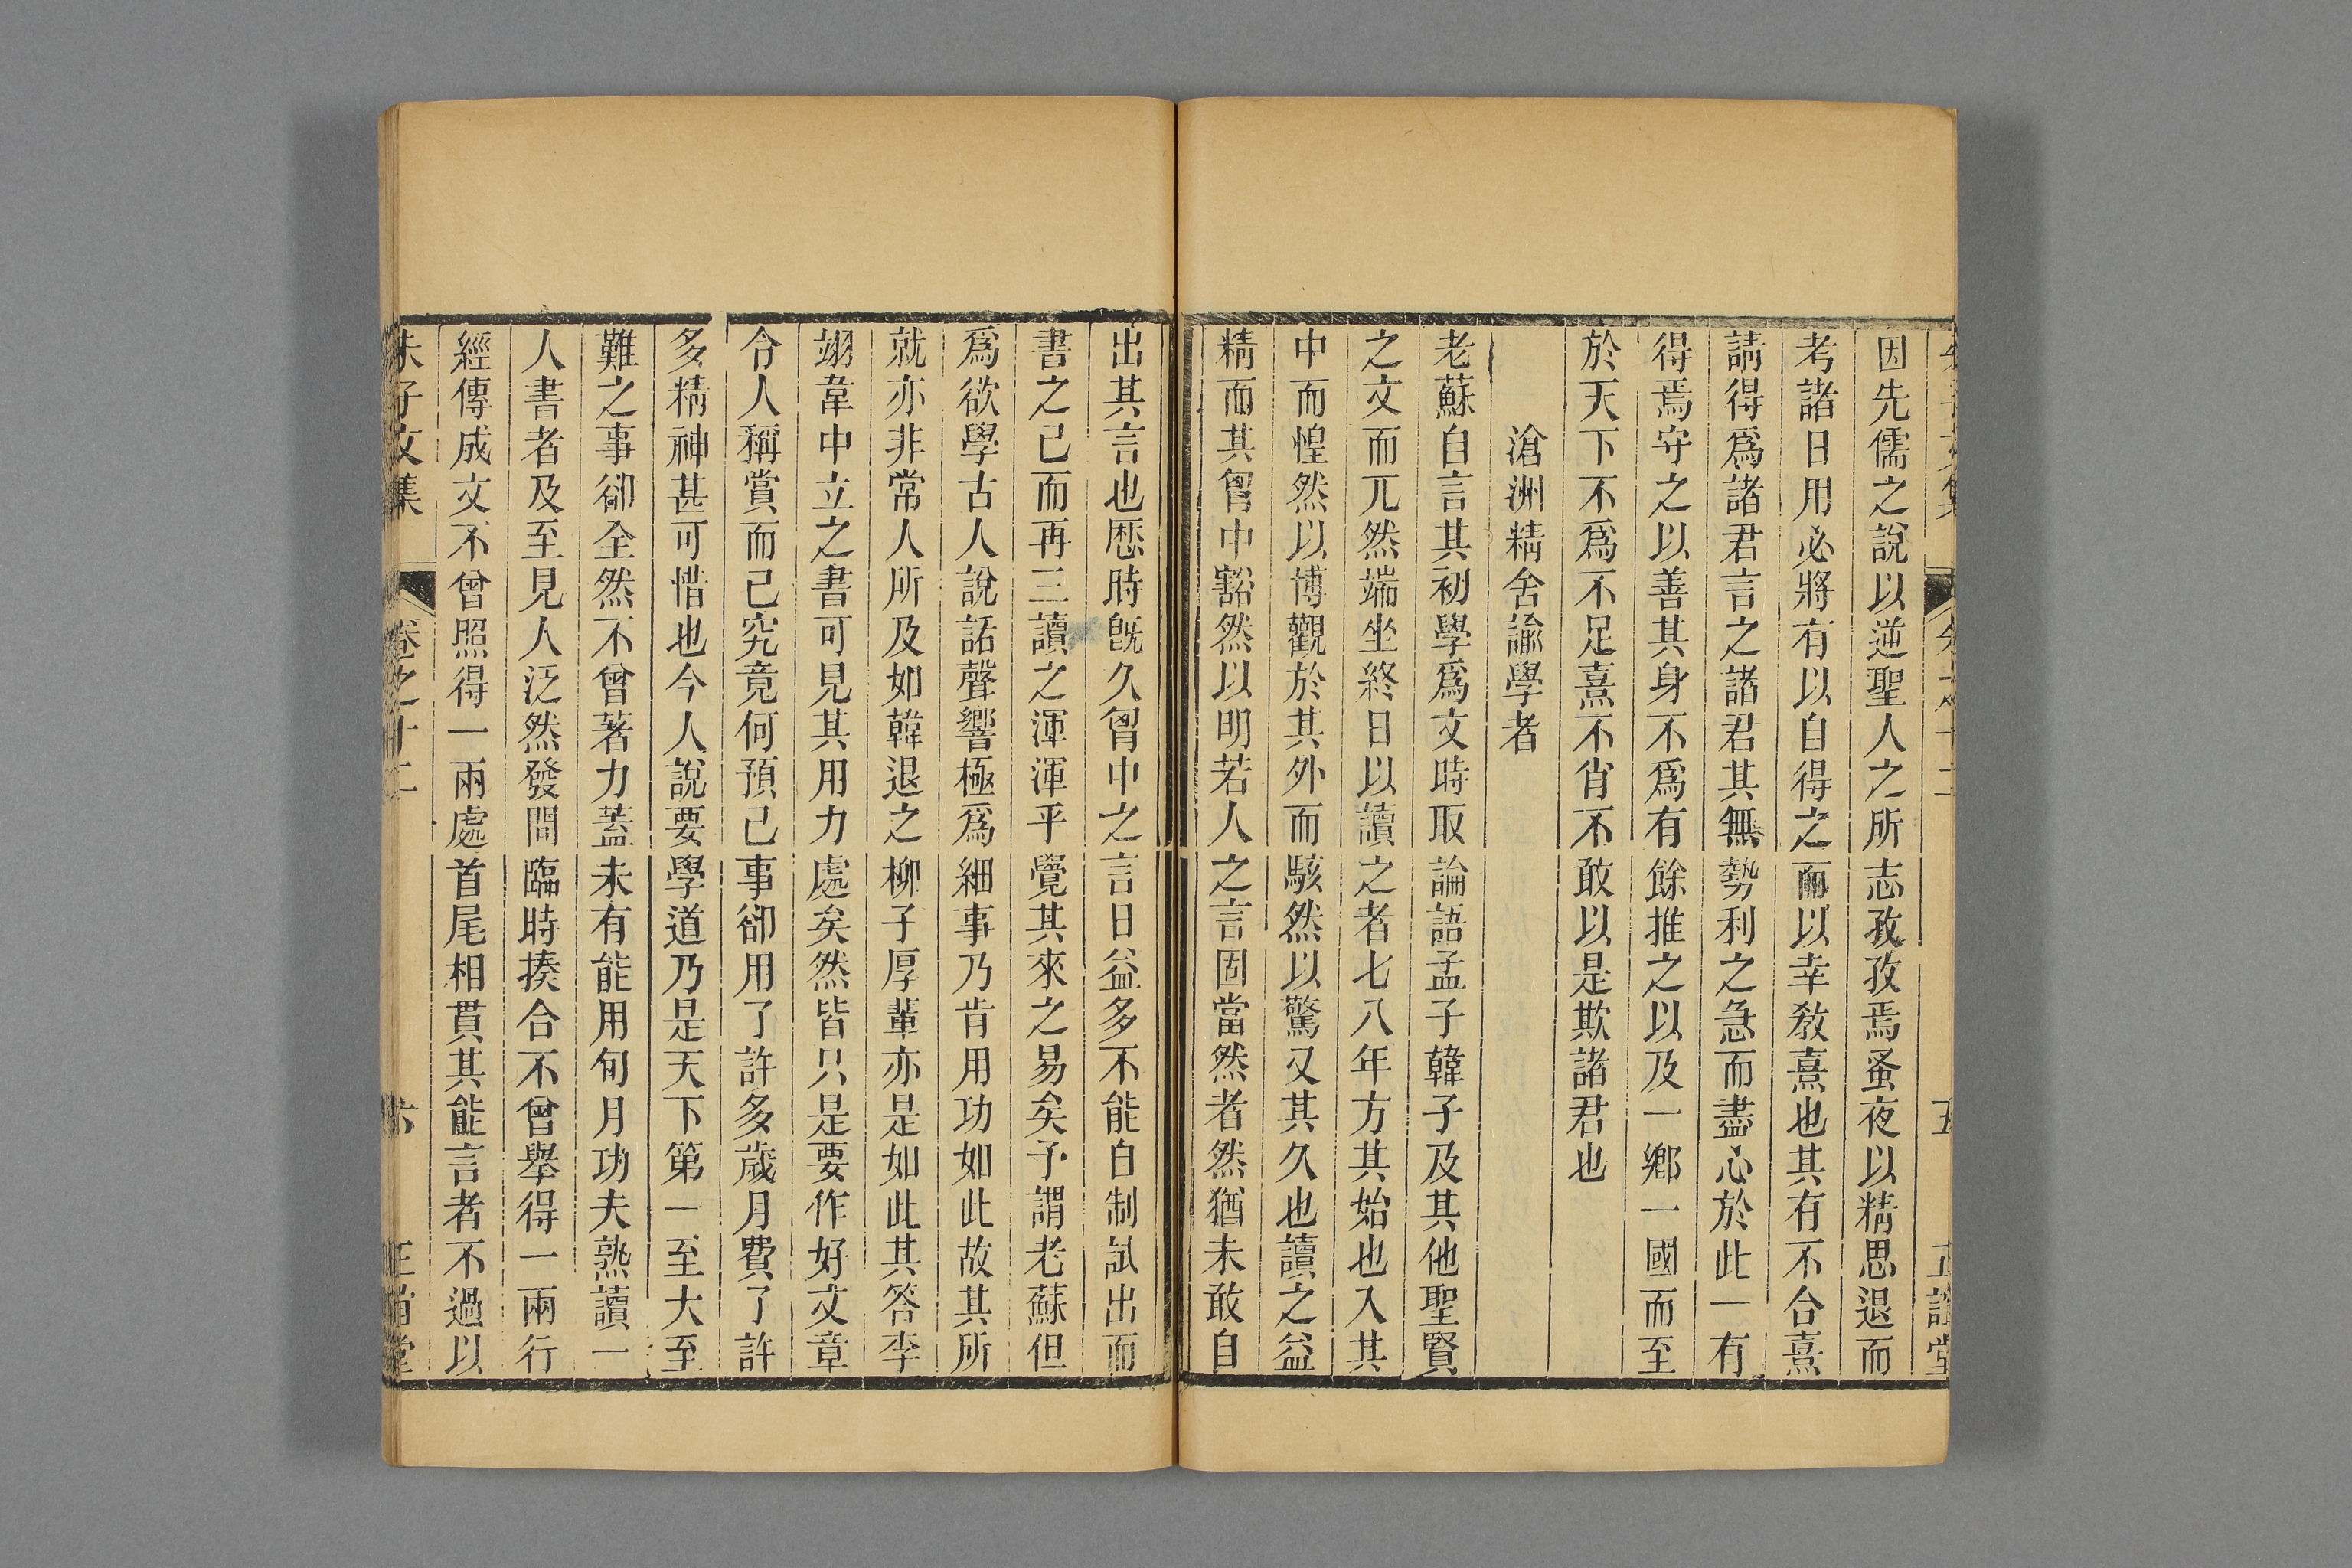 因先儒之說以逆聖人之所志孜孜焉蚤夜以精思退而
考諸日用必將有以自得之而以幸敎熹也其有不合熹
請得爲諸君言之諸君其無勢利之急而盡心於此一有
得焉守之以善其身不爲有餘推之以及一鄉一國而至
於天下不爲不足熹不肖不敢以是欺諸君也
滄洲精舍諭學者
老蘇自言其初學爲文時取論語孟子韓子及其他聖賢
之文而兀然端坐終日以讀之者七八年方其始也入其
中而惶然以博觀於其外而駭然以驚又其久也讀之益
精而其胷中豁然以明若人之言固當然者然猶未敢自
出其言也歷時旣久胷中之言日益多不能自制試出而
書之已而再三讀之渾渾乎覺其來之易矣予謂老蘇但
爲欲學古人說話聲響極爲細事乃肯用功如此故其所
就亦非常人所及如韓退之柳子厚輩亦是如此其答李
翊韋中立之書可見其用力處矣然皆只是要作好文章
令人稱賞而已究竟何預己事卻用了許多歲月費了許
多精神甚可惜也今人說要學道乃是天下第一至大至
難之事卻全然不曾著力蓋未有能用旬月功夫熟讀一
人書者及至見人泛然發問臨時揍合不曾舉得一兩行
經傳成文不曾照得一兩處首尾相貫其能言者不過以
朱子文集 卷之十二 六 正誼堂